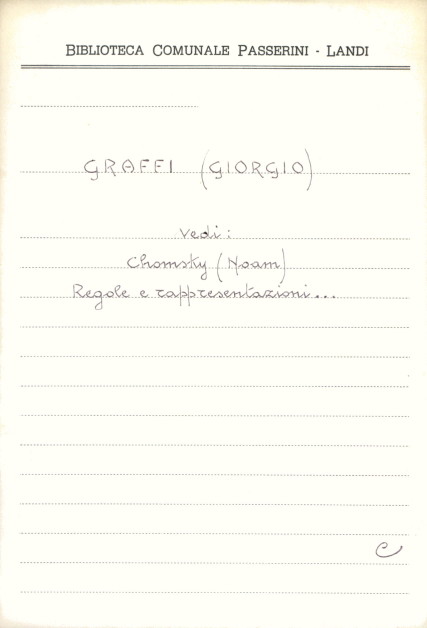 BIBLIOTECA COMUNALE PASSERINI - LANDI
GRAFFI (GIORGIO)
Vedi:
Chomsky (Noam)
Regole e rappresentazioni...
C